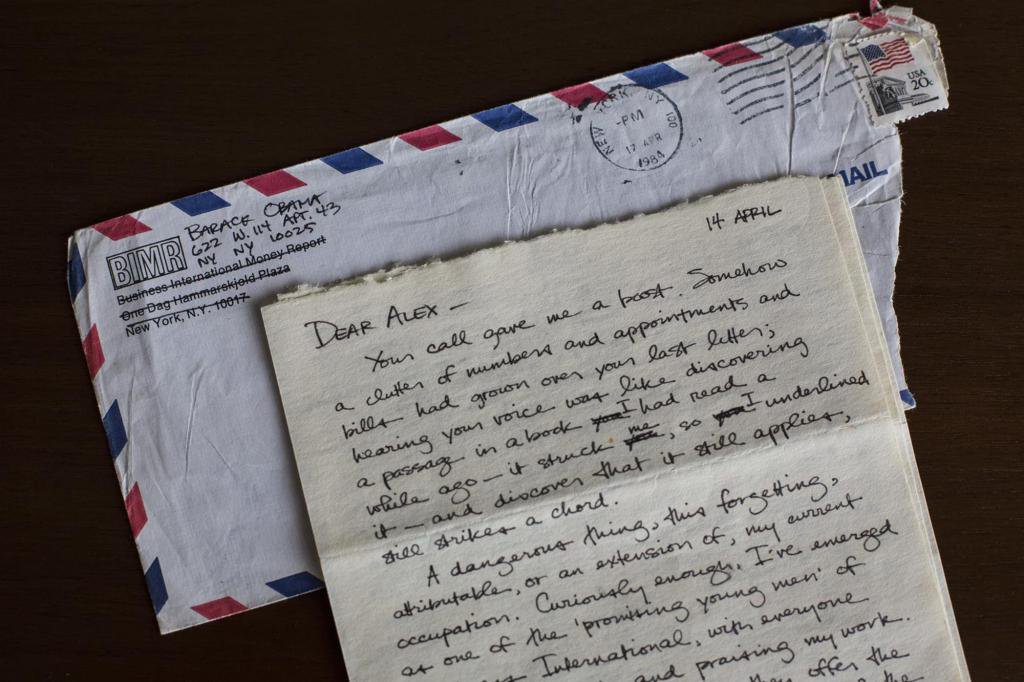 BIMR
BARACK OBAMA
622 W. 114 APT. 43
NY NY 10025
Business International Money Report
One Dag Hammarskjold Plaza
New York, N.Y. 10017
NEW YORK, NY 100
-PM
17 APR
1984
USA
20c
MAIL
14 APRIL
DEAR ALEX -
Your call gave me a boost. Somehow
a clutter of numbers and appointments and
bills had grown over your last letter;
hearing your voice was like discovering
a passage in a book you I had read a
while ago - it struck you me, so you I underlined
it - and discover that it still applies,
still strikes a chord.
A dangerous thing, this forgetting,
attributable, or an extension of, my current
occupation. Curiously enough, I've emerged
as one of the 'promising young men' of
International, with everyone
and praising my work.
they offer the
the